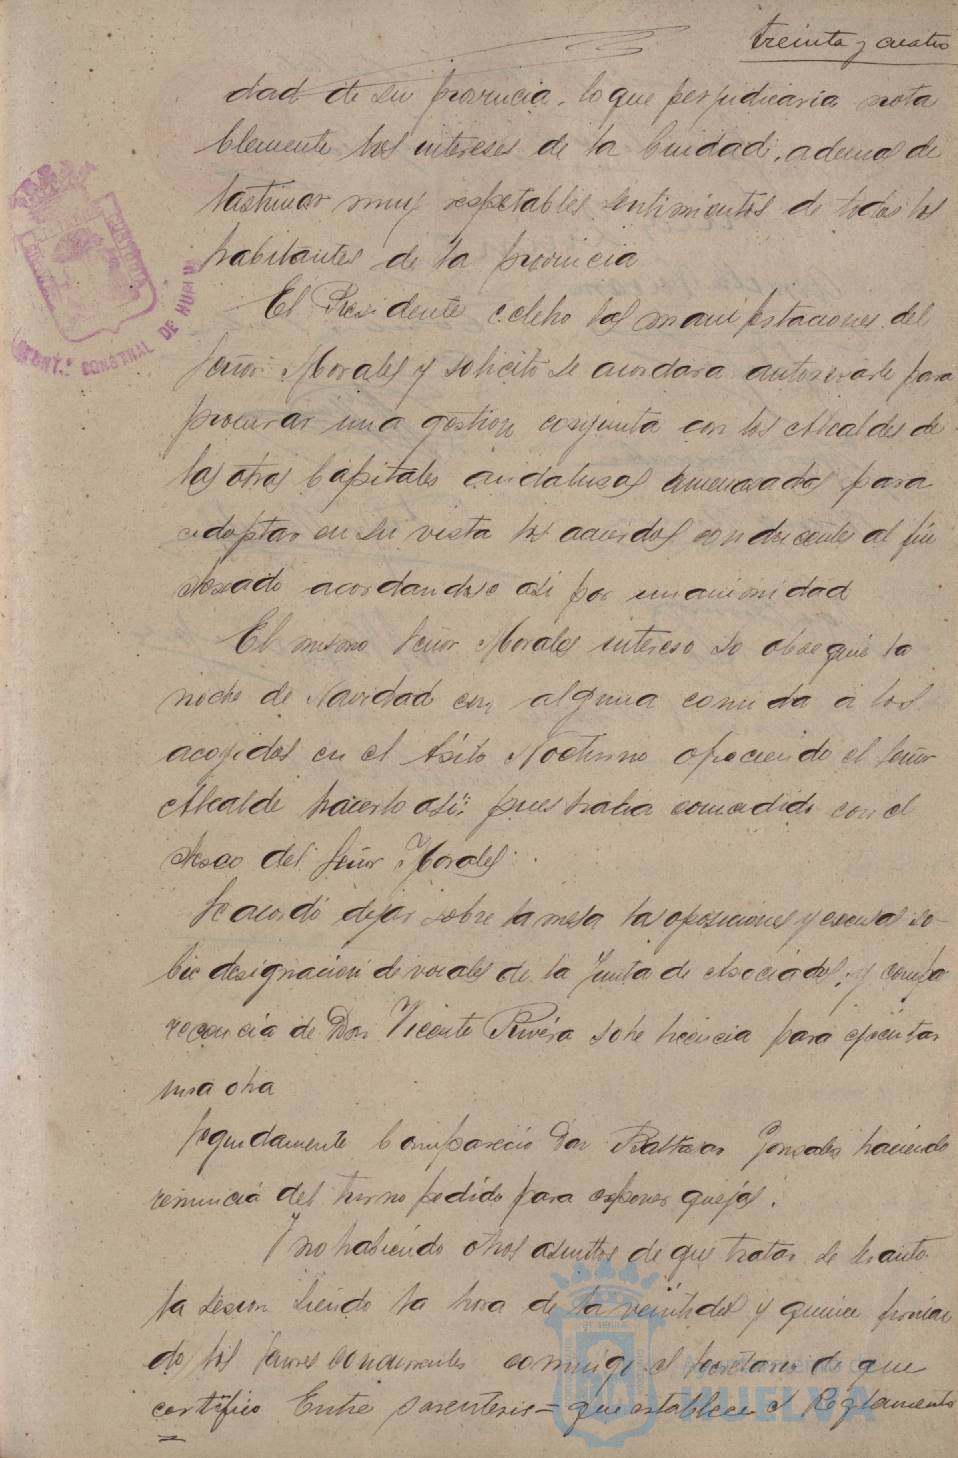 treinta y cuatro
dad de su provincia, lo que perjudicaria nota
blemente los intereses de la Ciudad, ademas de
lastimar muy respetables sentimientos de todos los
habitantes de la provincia
El Presidente las manifestaciones del
Señor Morales y solicitó se acordara autorizarle para
procurar una gestion conjunta con los Alcaldes de
las otras Capitales andaluzas amenazadas para
adoptar en su vista los acuerdos conducentes al fin
deseado acordandose asi por unanimidad
El mismo Señor Morales intereso se obsequie la
noche de Navidad con alguna comida a los
acogidos en el Asilo Nocturno ofreciendo el Señor
Alcalde hacerlo asi pues habia coincidido con el
deseo del Señor Morales.
Se acordó dejar sobre la mesa las oposiciones y excusas so-
bre designacion de vocales de la Junta de Asociados, y compa
recencia de Don Vicente Rivera sobre licencia para ejecutar
una obra
Seguidamente Compareció Don Baltasar Gonzalez haciendo
renuncia del turno pedido para exponer quejas.
Y no habiendo otros asuntos de que tratar se levantó
la sesion siendo la hora de la veintidos y quince firman
do los Señores concurrentes conmigo el Secretario de que
certifico Entre parentesis = que establece el Reglamento
AYUNT.º CONSTNAL DE HUELVA
Ayuntamiento de
HUELVA